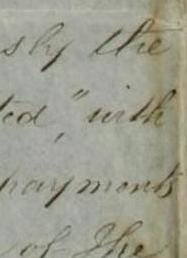 sly the
ted," with
payments
of the